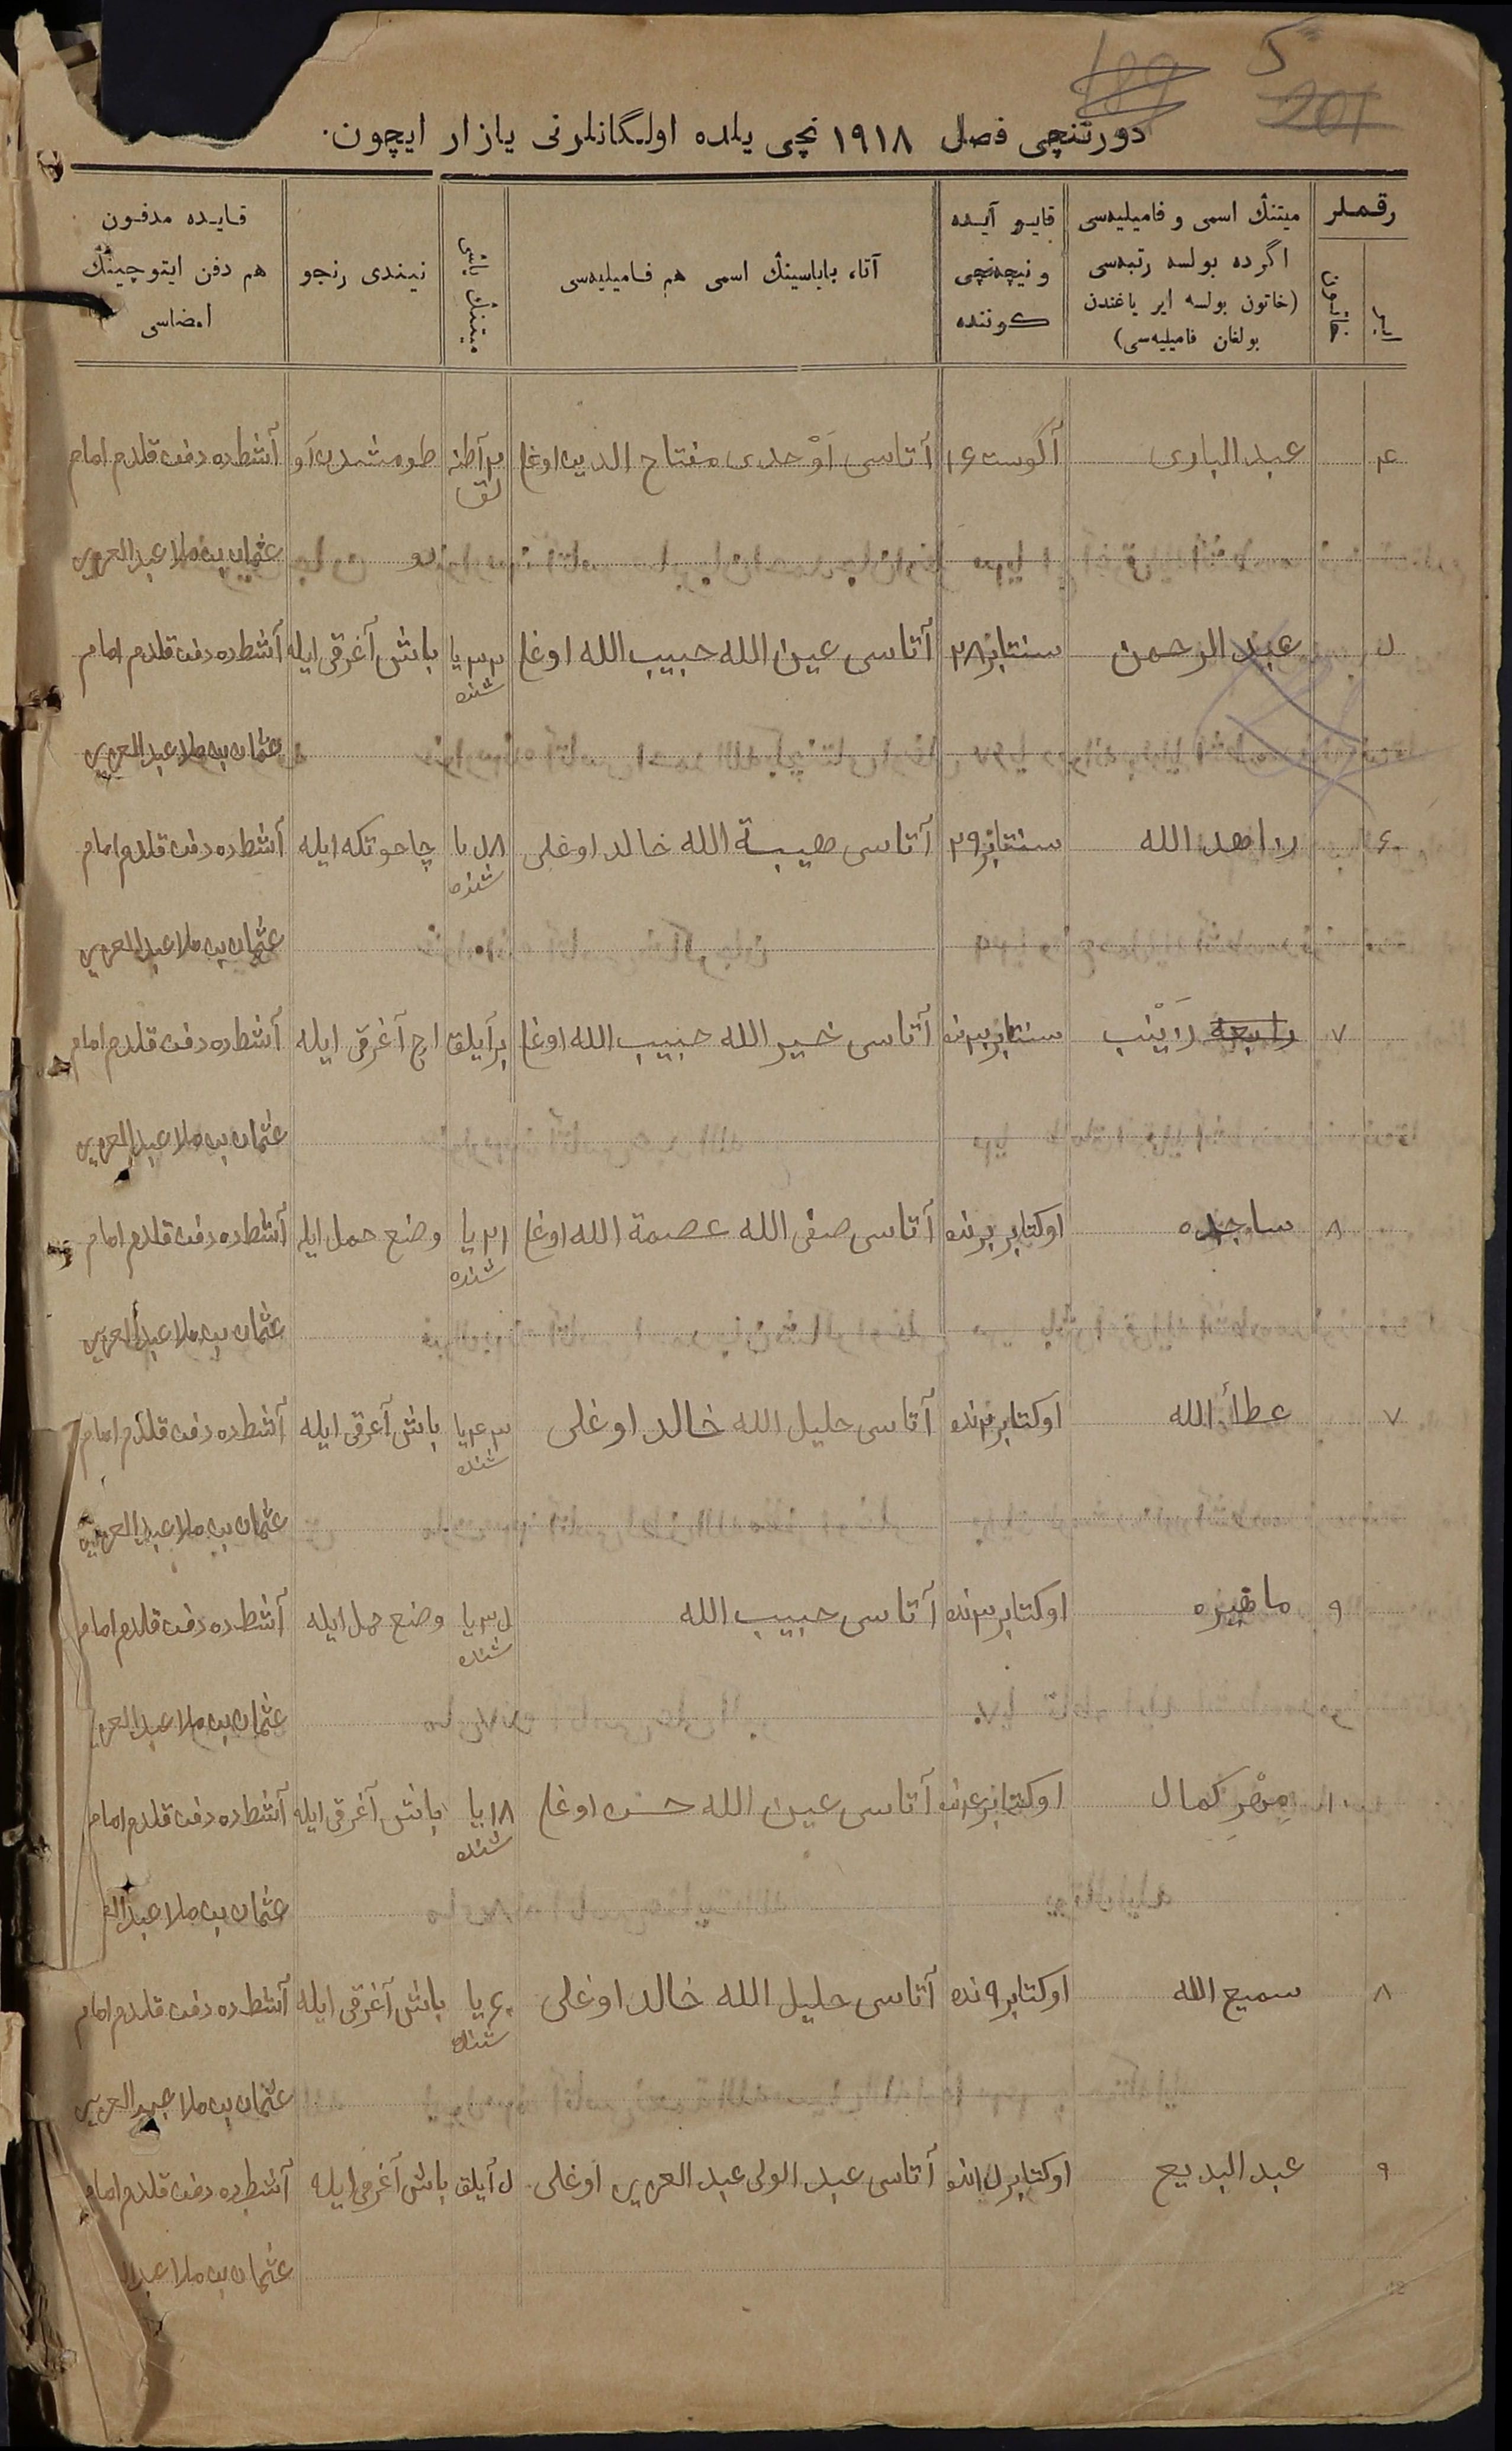 5
201
189
دورتنچی فصل ۱۹۱۸ نچی یلده اولگانلرنی یازار ایچون.
رقملر
ایر
خاتون
میتنڭ اسمی و فامیلیه‌سی
اگرده بولسه رتبه‌سی
(خاتون بولسه ایر یاغندن
بولغان فامیلیه‌سی)
قایو آیده
و نیچه‌نچی
کوننده
آتا، باباسینڭ اسمی هم فامیلیه‌سی
میتنڭ یاشی
نیندی رنجو
قایده مدفون
هم دفن ایتوچینڭ
امضاسی
۴ عبد الباری آگوست ۱۶ آتاسی اَوْحدی مفتاح الدین اوغلی ۲ آطنه لق آشطده دفن قلدم امام
عثمان بن ملا عبدالعزیز
۵ عبد الرحمن سنتابر ۲۸ آتاسی عین الله حبیب الله اوغلی ۳۳ یا شنده باش آغرقی ایله آشطده دفن قلدم امام
عثمان بن ملا عبدالعزیز
۶ سنتابر ۲۹ آتاسی هیبة الله خالد اوغلی ۵۸ یا شنده چاحوتکه ایله آشطده دفن قلدم امام
عثمان بن ملا عبدالعزیز
۷ رابعه زَیْنب سنتابر آتاسی خیر الله حبیب الله اوغلی بر آیلق اچ آغرقی ایله آشطده دفن قلدم امام
عثمان بن ملا عبدالعزیز
۸ ساجده اوکتابر برنده آتاسی صفی الله عصمة الله اوغلی ۲۱ یا شنده وضع حمل ایله آشطده دفن قلدم امام
عثمان بن ملا عبدالعزیز
۷ عطأ الله اوکتابر ۲ نده آتاسی خلیل الله خالد اوغلی یا شنده باش آغرقی ایله آشطده دفن قلدم امام
عثمان بن ملا عبدالعزیز
۹ ماهیره اوکتابر ۳ نده آتاسی حبیب الله ۳۵ یا شنده وضع حمل ایله آشطده دفن قلدم امام
عثمان بن ملا عبدالعزیز
۱۰ مِهْرِ کمال اوکتابر ۴ نده آتاسی عین الله حسن اوغلی ۱۸ یا شنده باش آغرقی ایله آشطده دفن قلدم امام
عثمان بن ملا
۸ سمیع الله اوکتابر ۹ نده آتاسی خلیل الله خالد اوغلی یا شنده باش آغرقی ایله آشطده دفن قلدم امام
عثمان بن ملا عبدالعزیز
۹ عبد البدیع اوکتابر ۱۵ نده آتاسی عبد الولی عبد العزیز اوغلی ۵ آیلق باش آغرقی ایله آشطده دفن قلدم امام
عثمان بن ملا